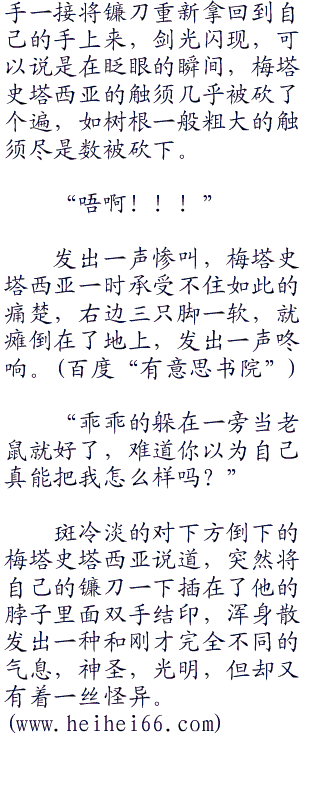 手一接将镰刀重新拿回到自
己的手上来，剑光闪现，可
以说是在眨眼的瞬间，梅塔
史塔西亚的触须几乎被砍了
个遍，如树根一般粗大的触
须尽是数被砍下。
“唔啊！！！”
发出一声惨叫，梅塔史
塔西亚一时承受不住如此的
痛楚，右边三只脚一软，就
瘫倒在了地上，发出一声咚
响。(百度“有意思书院”)
“乖乖的躲在一旁当老
鼠就好了，难道你以为自己
真能把我怎么样吗？”
斑冷淡的对下方倒下的
梅塔史塔西亚说道，突然将
自己的镰刀一下插在了他的
脖子里面双手结印，浑身散
发出一种和刚才完全不同的
气息，神圣，光明，但却又
有着一丝怪异。
(www.heihei66.com)